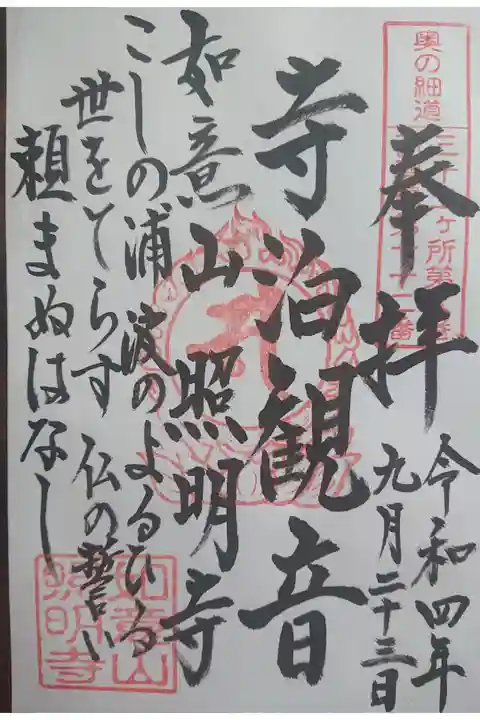 奉拝
令和四年
九月二十三日
寺泊観音
如意山照明寺
こしの浦 波のよるひる
世をてらす 仏の誓い
頼まぬはなし
奥の細道
如意山
照明寺